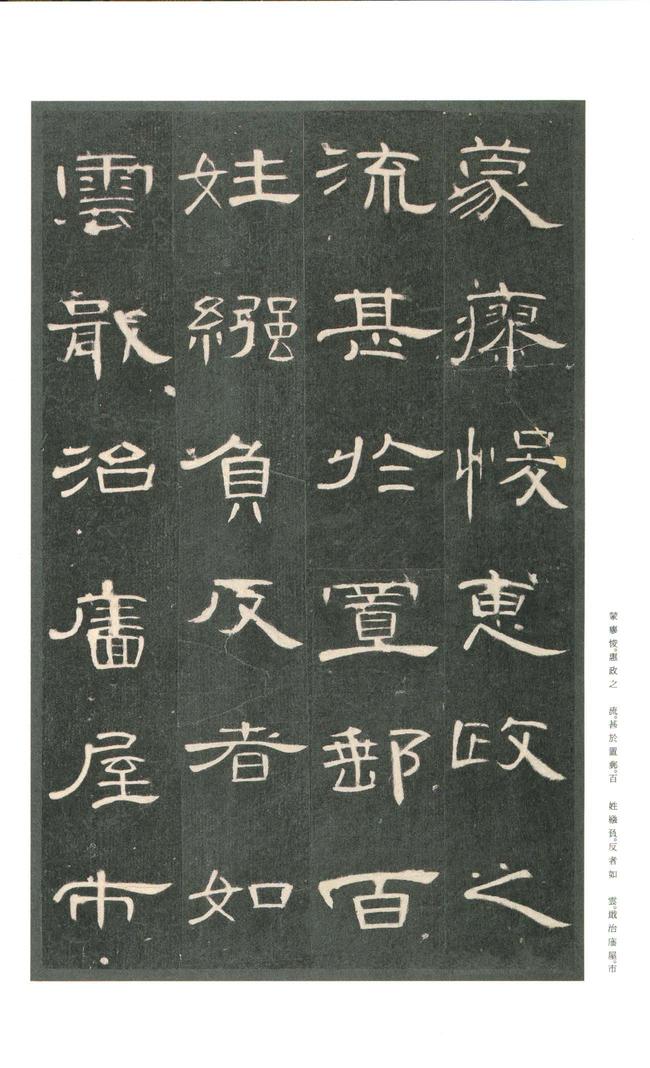 蒙瘳悛惠政之
流甚於置郵百
姓繦負反者如
雲戢治廧屋市
蒙瘳悛。惠政之 流。甚於置郵。百 姓繈負。反者如 雲。戢治廧屋。市